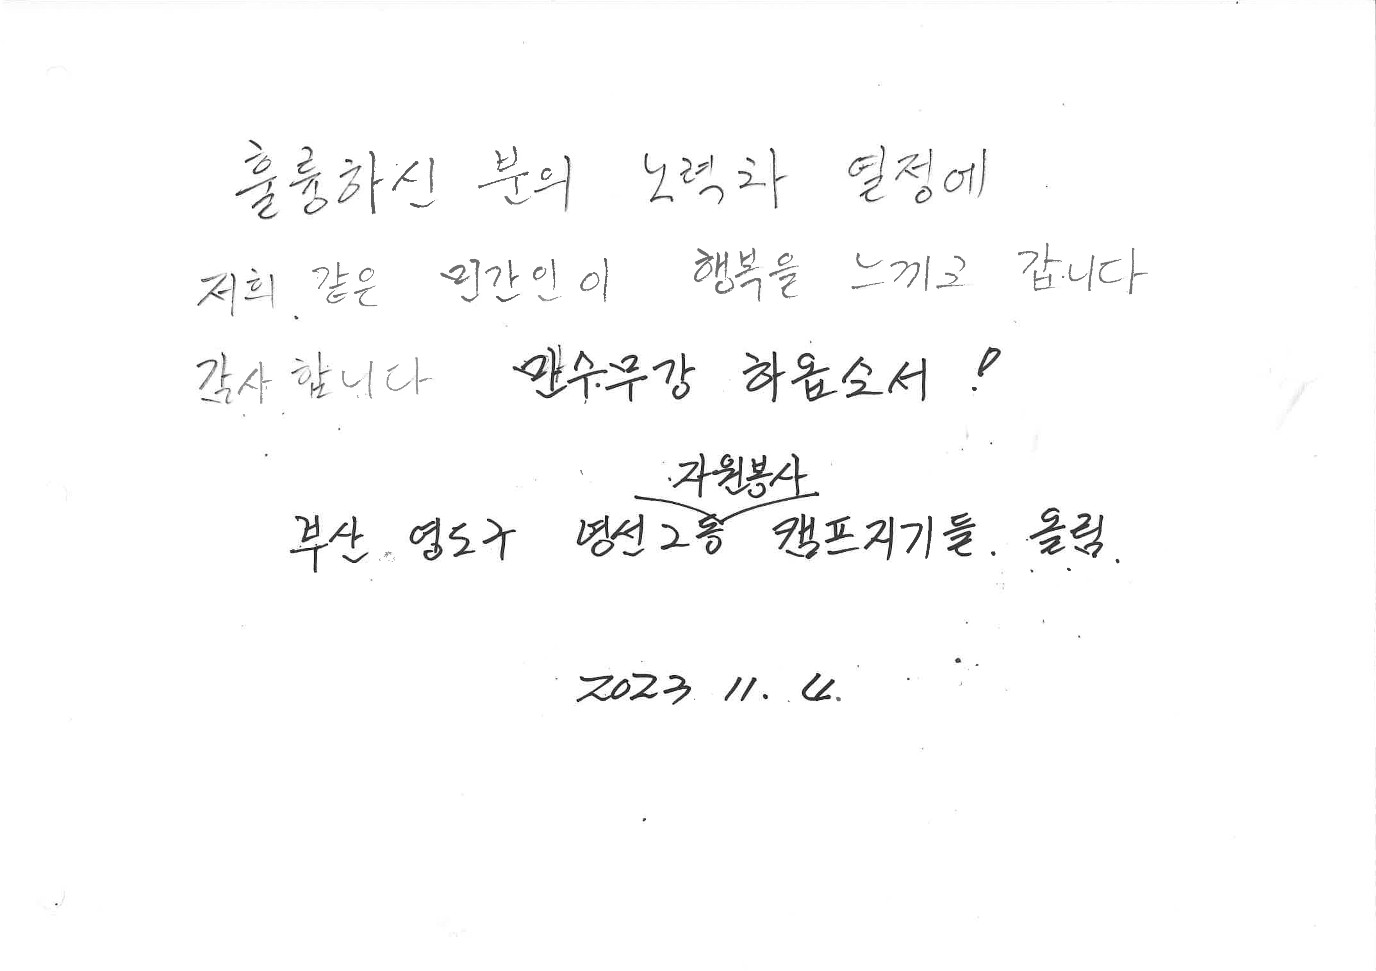 훌륭하신 분의 노력과 열정에
저희 같은 민간인이 행복을 느끼고 갑니다
감사합니다 만수무강 하옵소서!
자원봉사
부산 영도구 영선2동 캠프지기들. 올림.
2023 11. 4.